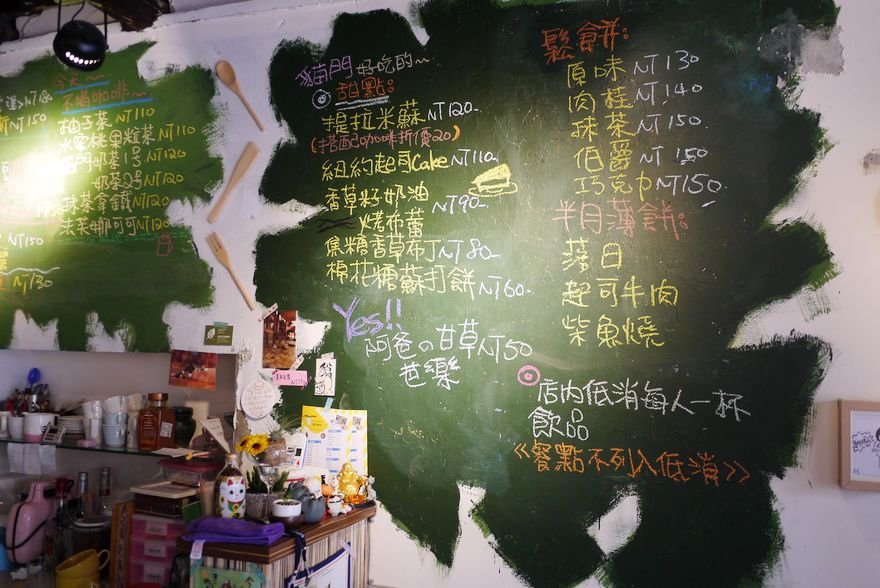 今天~
不喝咖啡~
柚子茶 NT110
水蜜桃果粒茶 NT110
奶茶1号 NT120
奶茶2号 NT120
抹茶拿鐵 NT120
法芙娜可可 NT120
NT150
NT150
NT130
貓門好吃的~
甜點:
提拉米蘇 NT120-
(搭配咖啡折價20)
紐約起司Cake NT110-
香草籽奶油
烤布蕾 NT90-
焦糖香草布丁 NT80-
棉花糖蘇打餅 NT60-
Yes!!
阿爸の甘草 NT50
芭樂
鬆餅:
原味 NT130
肉桂 NT140
抹茶 NT150
伯爵 NT150
巧克力 NT150
半月薄餅:
落日
起司牛肉
柴魚燒
店内低消每人一杯
飲品
<<餐點不列入低消>>